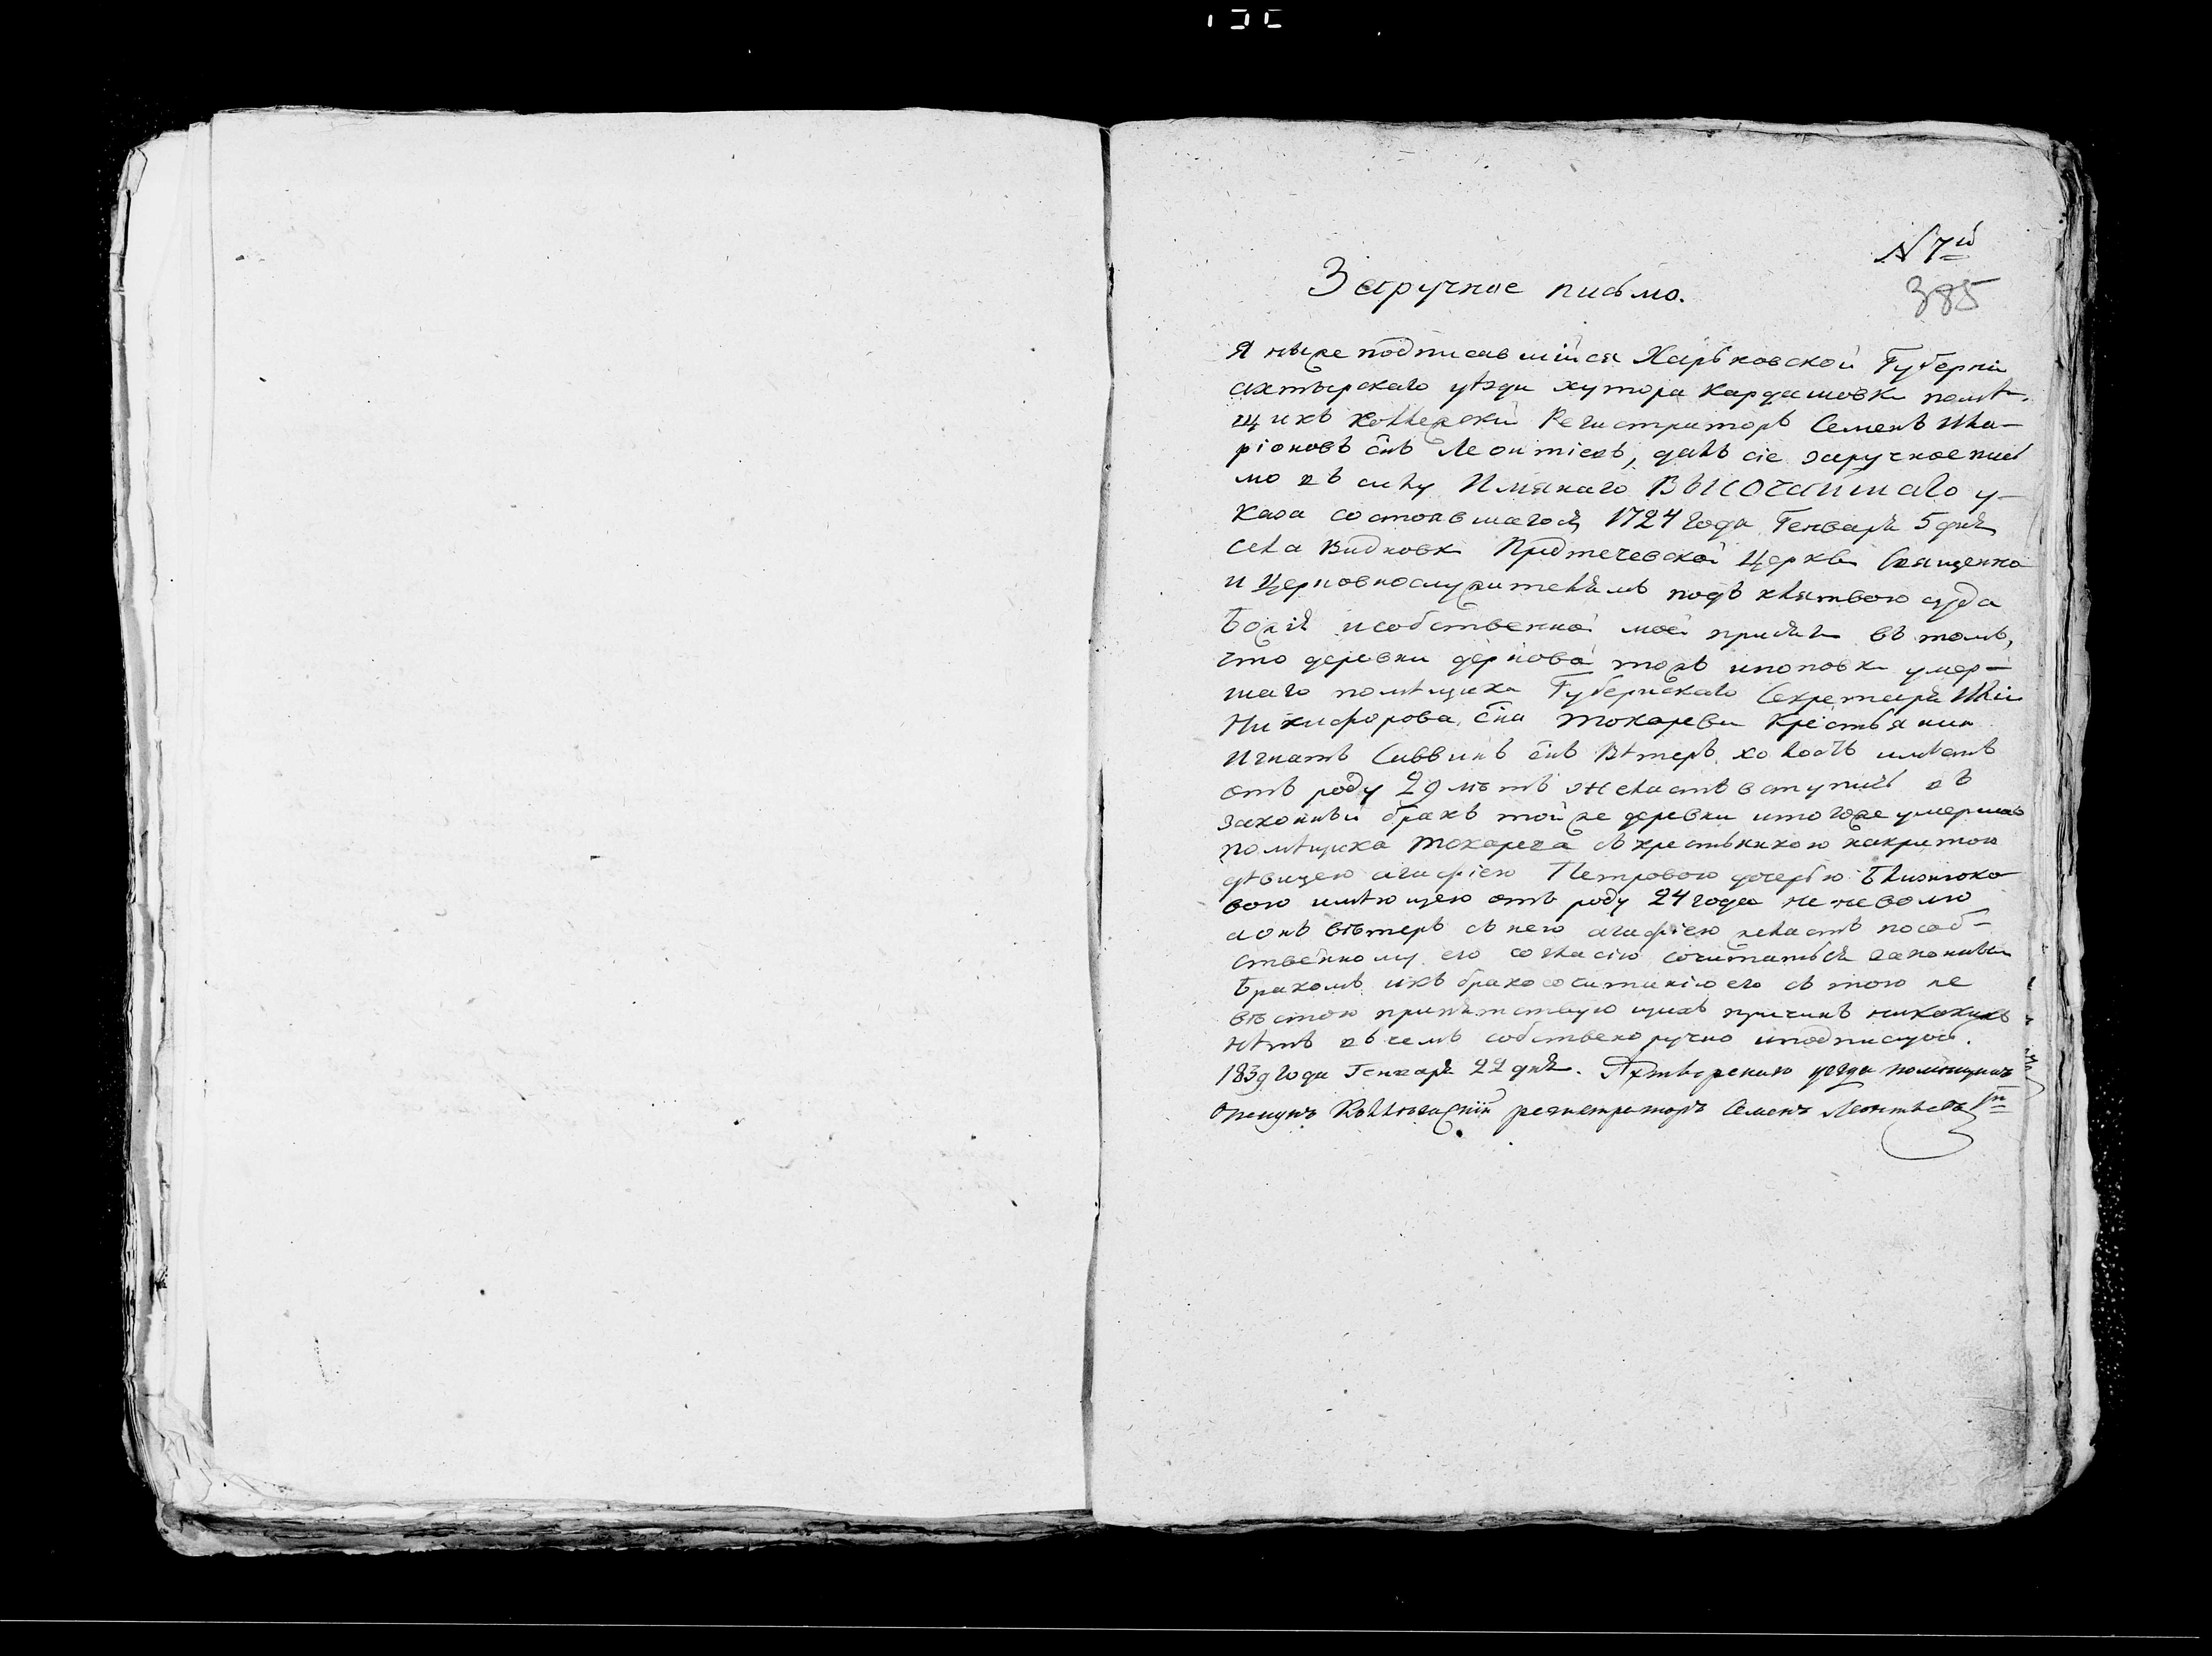 N 7й
385
Заручное письмо.
Я ниже подписавшійся Харьковской Губерніи
ахтырскаго уѣзда хутора Кардашовки помѣ-
щикъ Коллежскій Регистраторъ Семенъ Ила-
ріоновъ сн҃ъ Леонтіевъ, далъ сіе заручное пись
мо въ силу Имяннаго ВЫСОЧАЙШАГО у-
каза состоявшагося 1724 года Генваря 5 дня
села Видновки Предтечевской Церкви Священно
и Церковнослужителямъ подъ клятвою суда
Божія и собственной моей присяги въ томъ,
что деревни дерновой тожъ и поповки умер-
шаго помѣщика Губернскаго Секретаря Ильи
Никифорова сн҃а Токарева Крестьянин
Игнатъ Саввинъ сн҃ъ Вѣтеръ холостъ имѣетъ
отъ роду 29 лѣтъ желаетъ вступить въ
законный бракъ той же деревни и того же умершаго
помѣщика Токарева съ крестьянкою накритою
дѣвицею агафіею Петровою дочерью Близнюко
вою имѣющею отъ роду 24 года не неволю
а онъ вѣтеръ съ нею агафіею желаетъ по соб-
ственному его согласію сочитаться законнымъ
Бракомъ и къ бракосочитанію его съ тою не
вѣстою припятствующихъ причинъ никакихъ
нѣтъ въ чемъ собственоручно и подписуюсь.
1839 года Генваря 22 дня. Ахтырскаго уезда помещикъ
Опекунъ Коллежскій регистраторъ Семенъ Леонтьевъ